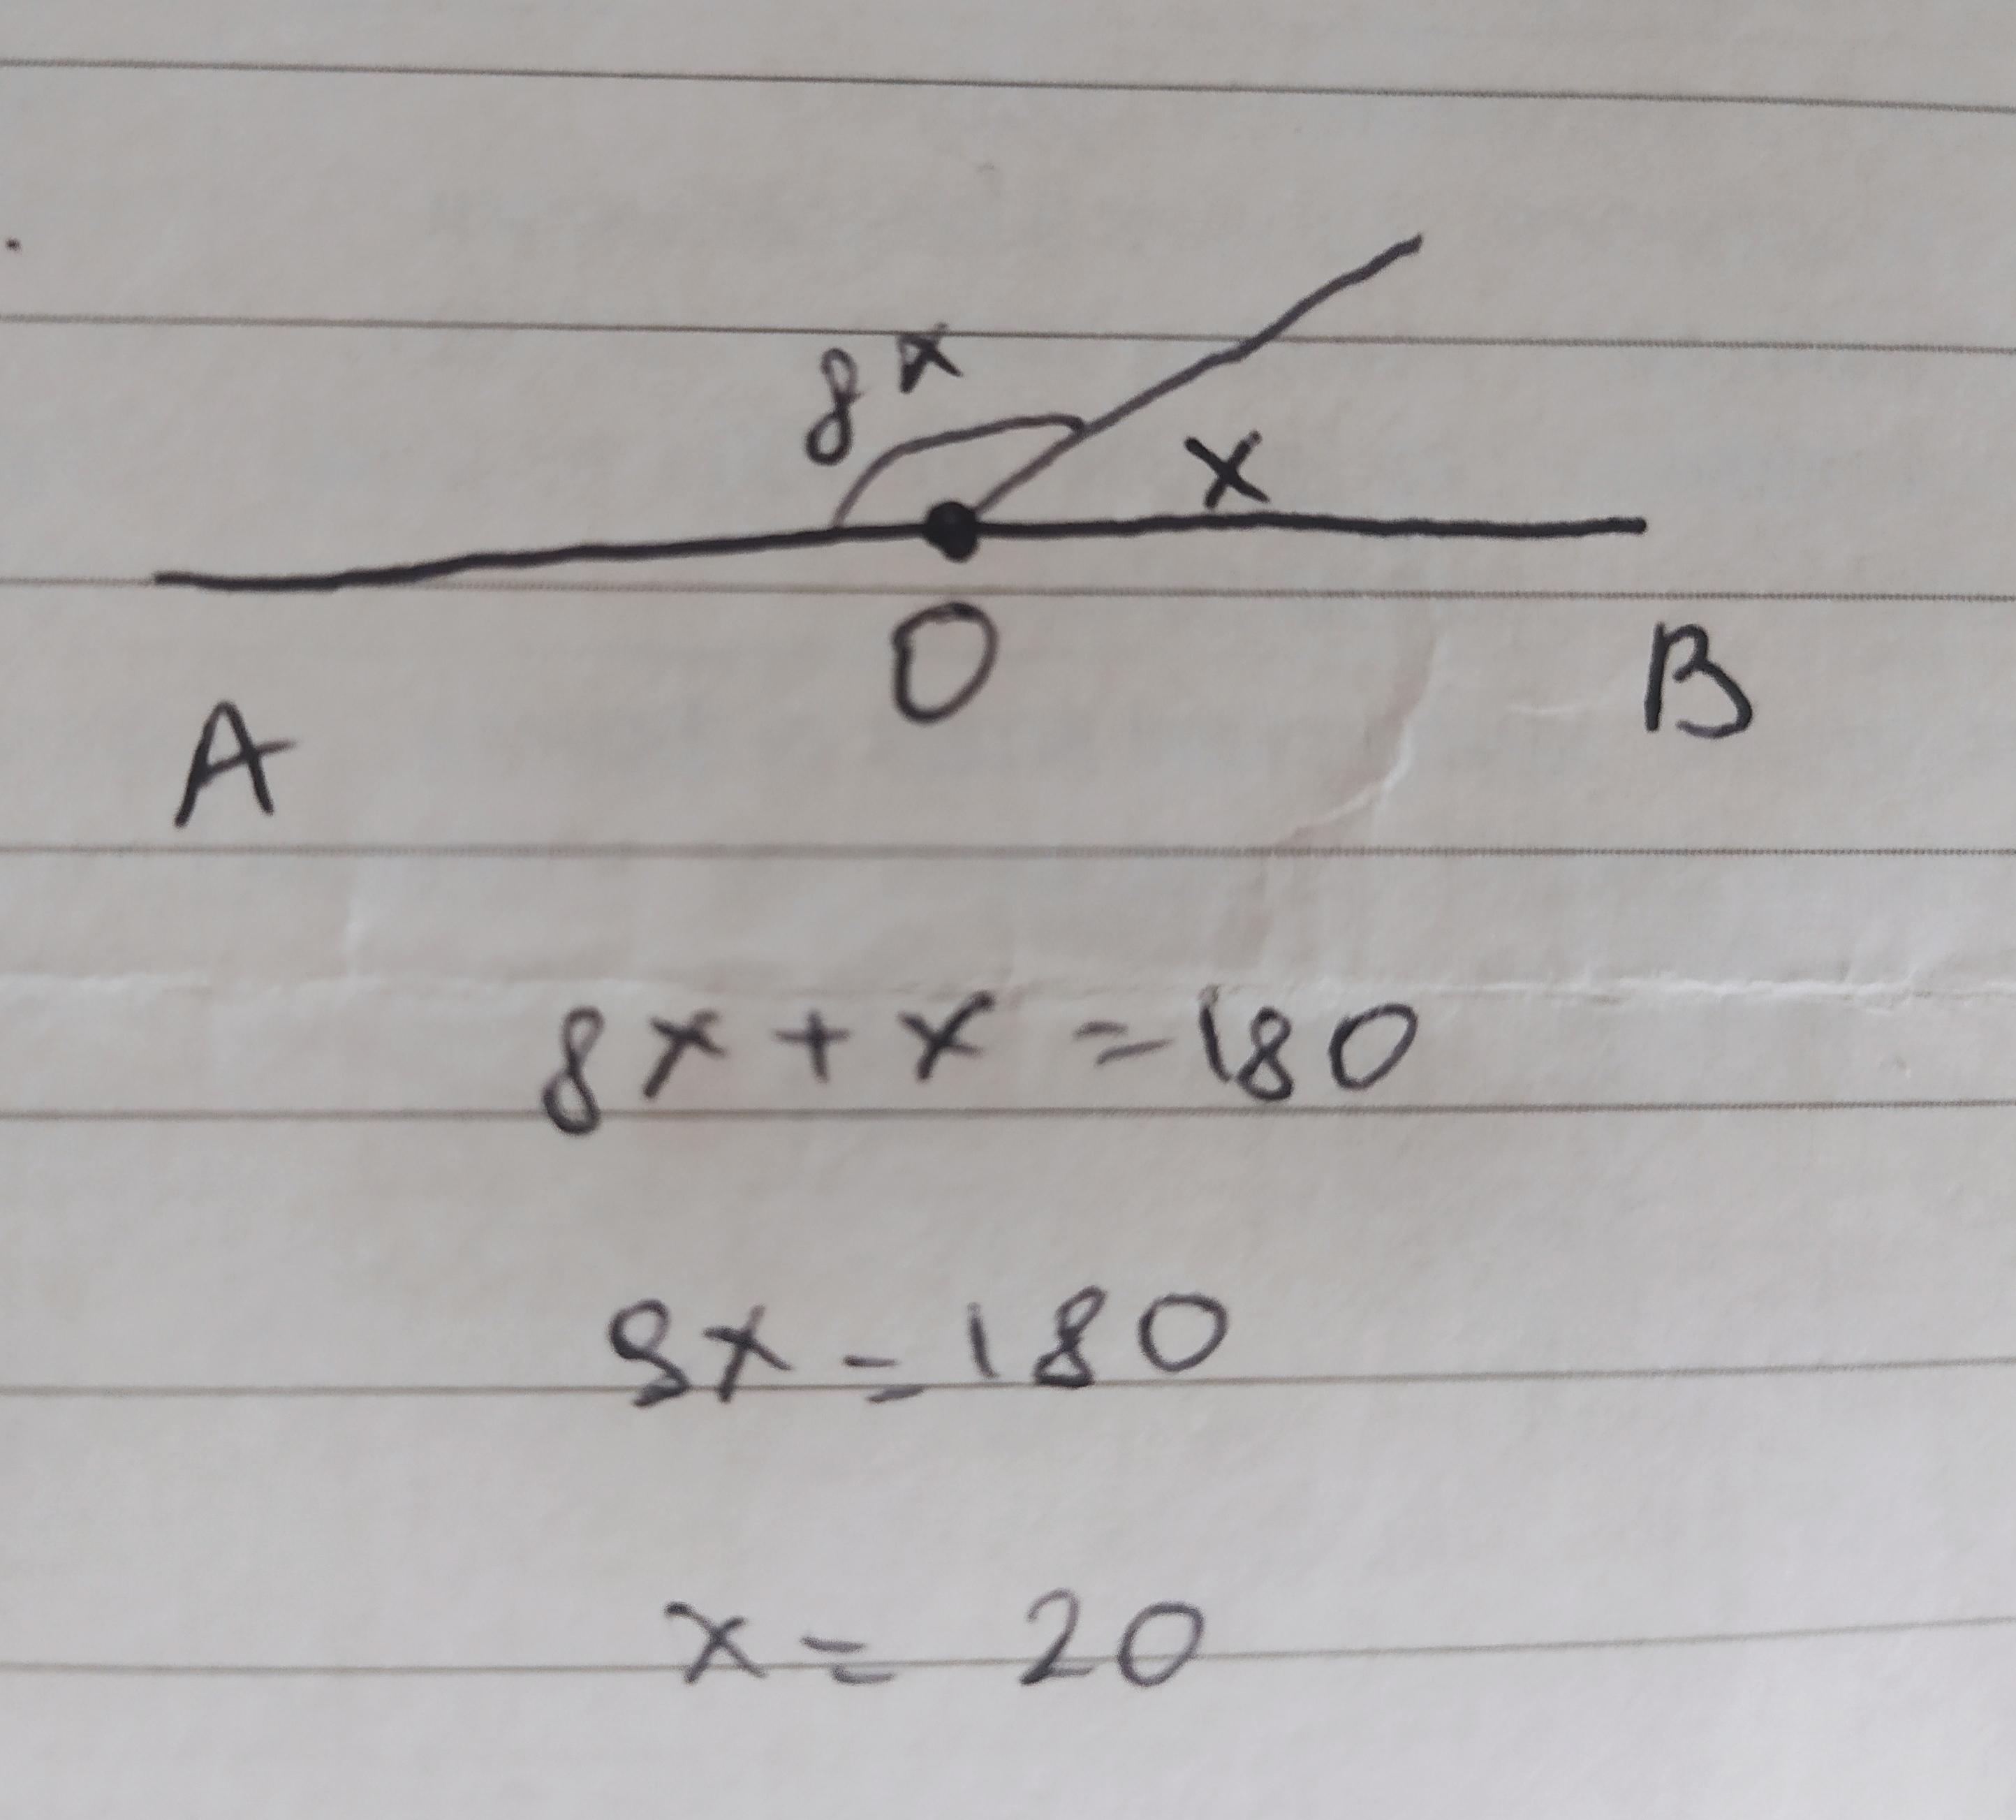 8x
x
O
A
B
8x + x = 180
9x = 180
x = 20